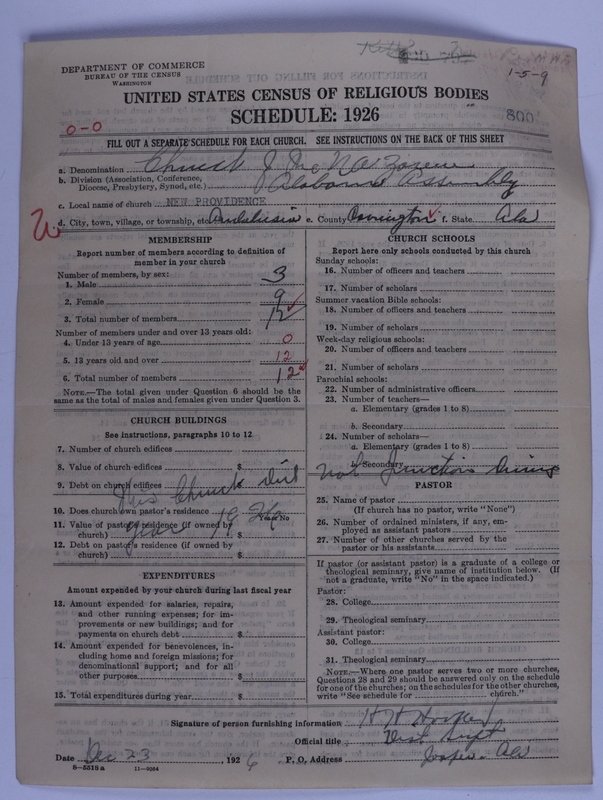 DEPARTMENT OF COMMERCE
BUREAU OF THE CENSUS
WASHINGTON
1-5-9
UNITED STATES CENSUS OF RELIGIOUS BODIES
SCHEDULE: 1926
800
0-0
FILL OUT A SEPARATE SCHEDULE FOR EACH CHURCH. SEE INSTRUCTIONS ON THE BACK OF THIS SHEET
a. Denomination Church of the Nazarene
b. Division (Association, Conference, Diocese, Presbytery, Synod, etc.) Alabama Assembly
c. Local name of church NEW PROVIDENCE
d. City, town, village, or township, etc. Andalusia e. County Covington f. State Ala
MEMBERSHIP
Report number of members according to definition of
member in your church
Number of members, by sex:
1. Male 3
2. Female 9
3. Total number of members 12
Number of members under and over 13 years old:
4. Under 13 years of age 0
5. 13 years old and over 12
6. Total number of members 12
NOTE.—The total given under Question 6 should be the
same as the total of males and females given under Question 3.
CHURCH BUILDINGS
See instructions, paragraphs 10 to 12
7. Number of church edifices
8. Value of church edifices $
9. Debt on church edifices $
This Church did
10. Does church own pastor's residence? Yes or No
11. Value of pastor's residence (if owned by
church) $
year 1926
12. Debt on pastor's residence (if owned by
church) $
EXPENDITURES
Amount expended by your church during last fiscal year
13. Amount expended for salaries, repairs,
and other running expenses; for im-
provements or new buildings; and for
payments on church debt $
14. Amount expended for benevolences, in-
cluding home and foreign missions; for
denominational support; and for all
other purposes $
15. Total expenditures during year $
CHURCH SCHOOLS
Report here only schools conducted by this church
Sunday schools:
16. Number of officers and teachers
17. Number of scholars
Summer vacation Bible schools:
18. Number of officers and teachers
19. Number of scholars
Week-day religious schools:
20. Number of officers and teachers
21. Number of scholars
Parochial schools:
22. Number of administrative officers
23. Number of teachers—
a. Elementary (grades 1 to 8)
b. Secondary
24. Number of scholars—
a. Elementary (grades 1 to 8)
b. Secondary
not function during
PASTOR
25. Name of pastor
(If church has no pastor, write "None")
26. Number of ordained ministers, if any, em-
ployed as assistant pastors
27. Number of other churches served by the
pastor or his assistants
If pastor (or assistant pastor) is a graduate of a college or
theological seminary, give name of institution below. (If
not a graduate, write "No" in the space indicated.)
Pastor:
28. College
29. Theological seminary
Assistant pastor:
30. College
31. Theological seminary
NOTE.—Where one pastor serves two or more churches,
Questions 28 and 29 should be answered only on the schedule
for one of the churches; on the schedules for the other churches,
write "See schedule for church."
Signature of person furnishing information H H Hooker
Official title Dist Supt
Date Dec 23, 1926 P. O. Address Ala
8—5518 a 11—9064